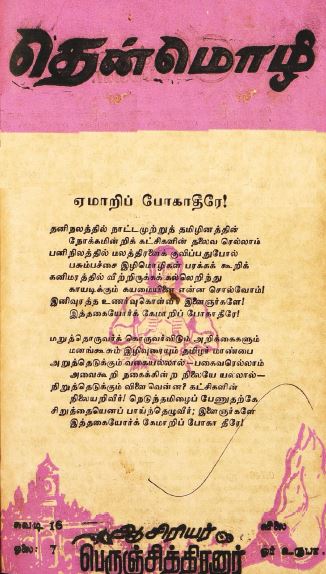 தென்மொழி
ஏமாறிப் போகாதீரே!
தனிநலத்தில் நாட்டமுற்றுத் தமிழினத்தின்
நோக்கமின் றிக் கட்சிகளின் தலைவ ரெல்லாம்
பனிநிலத்தில் மலத்திரளைக் குவிப்பதுபோல்
பசும்பச்சை இழிமொழிகள் பரக்கக் கூறிக்
கனிமரத்தில் வீற்றிருக்கக் கல்லெறிந்து
காயடிக்கும் கயமையினை என்ன சொல்வோம்!
இனியுரத்த உணர்வுகொள்வீர் இளைஞர்களே!
இத்தகையோர்க் கேமாறிப் போகா தீரே!
மறுத்தொருவர்க் கொருவர்விடும் அறிக்கைகளும்
மனங்கூசும் இழிவுரையும் தமிழர் மாண்பை
அறுத்தெடுக்கும் வகையல்லால்—பகைவரெல்லாம்
அவைகூறி நகைக்கின்ற நிலையே யல்லால்—
நிறுத்தெடுக்கும் விளைவென்ன? கட்சிகளின்
நிலையறிவீர்! நெடுந்தமிழைப் பேணுதற்கே
சிறுத்தையெனப் பாய்ந்தெழுவீர்; இளைஞர்களே
இத்தகையோர்க் கேமாறிப் போகா தீரே!
சுவடி 16
ஓலை: 7
ஆசிரியர்
பெருஞ்சித்திரனார்
விலை
ஓர் உருபா.